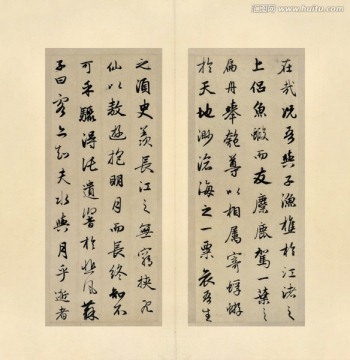 在哉况吾與子漁樵於江渚之
上侣魚蝦而友麋鹿駕一葉之
扁舟舉匏尊以相属寄蜉蝣
於天地渺滄海之一粟哀吾生
之須臾羨長江之無窮挾飛
仙以遨遊抱明月而長終知不
可乎驟得託遺響於悲風蘇
子曰客亦知夫水與月乎逝者